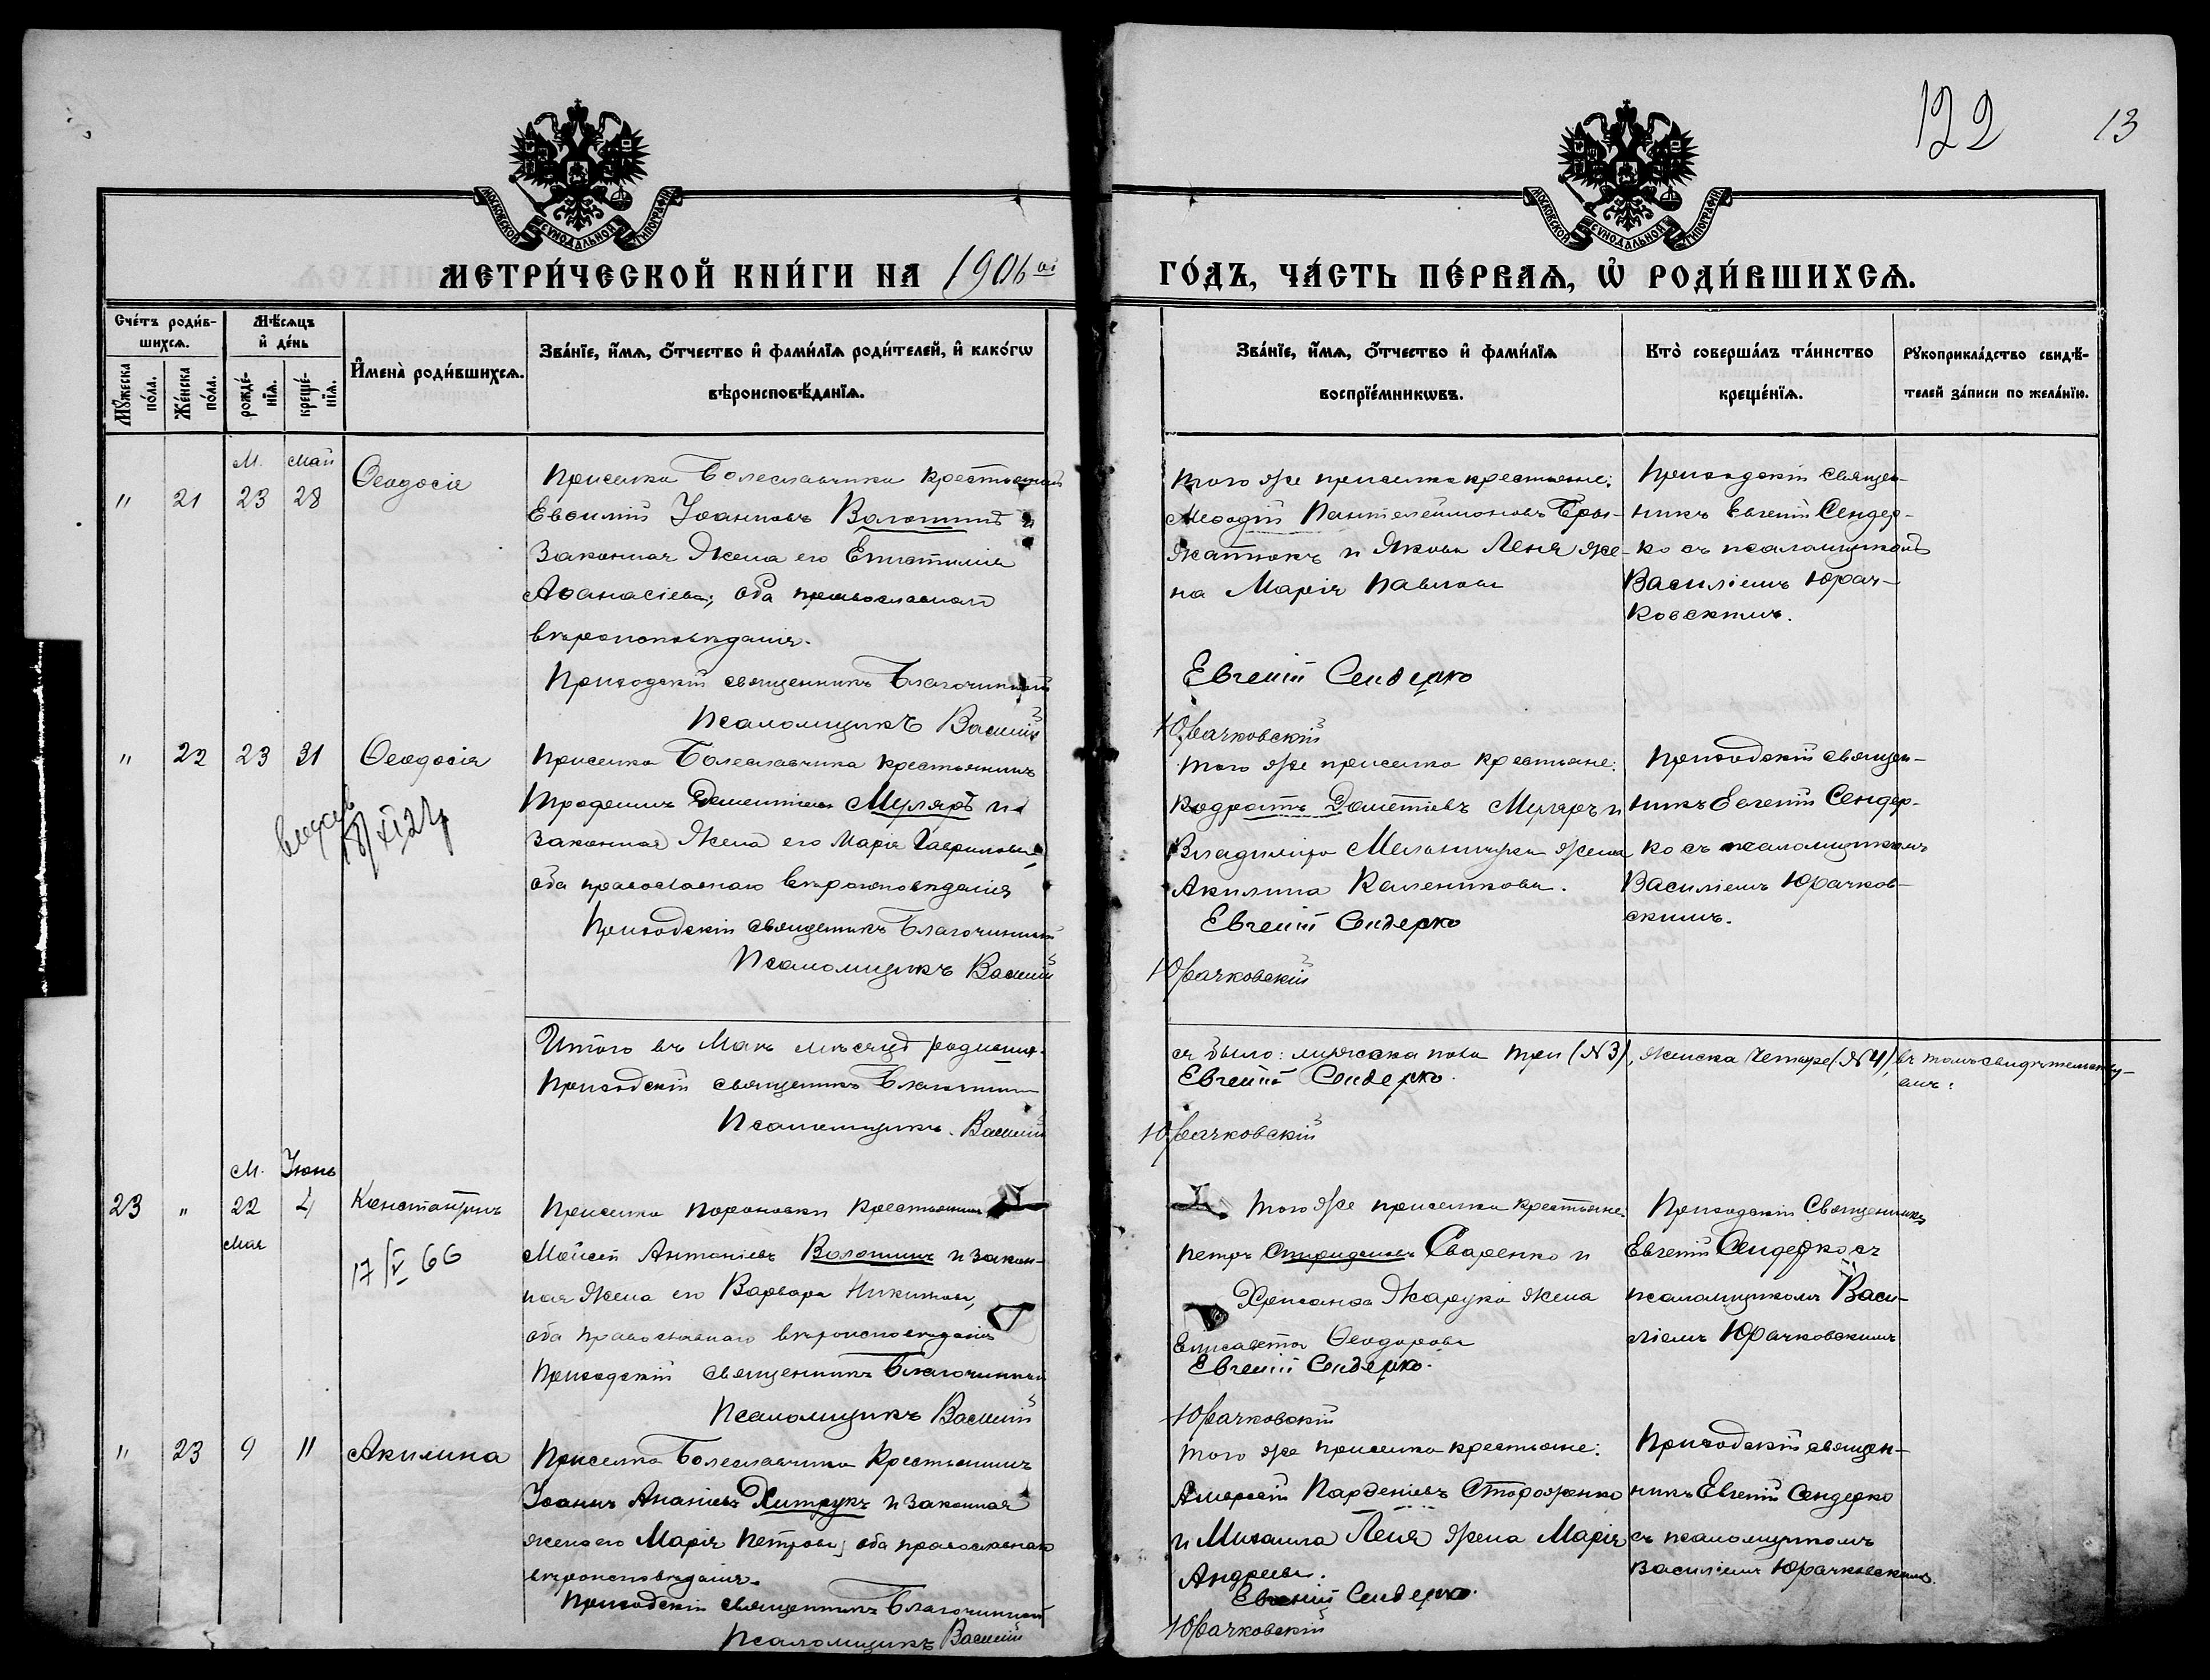 122
13
МОСКОВСКОЙ СѴНОДАЛЬНОЙ ТИПОГРАФІИ
МОСКОВСКОЙ СѴНОДАЛЬНОЙ ТИПОГРАФІИ
МЕТРИ́ЧЕСКОЙ КНИ́ГИ НА 1906
ГО́ДЪ, ЧА́СТЬ ПЕ́РВАѦ, Ѡ҆ РОДИ́ВШИХСѦ.
Сче́тъ роди́вшихсѧ.
Мꙋ́жеска по́ла.
Же́нска по́ла.
Мѣ́сѧцъ и҆ де́нь
рожде́нїѧ.
креще́нїѧ.
И҆мена̀ роди́вшихсѧ.
Зва́нїе, и҆́мѧ, ѻ҆́тчество и҆ фами́лїѧ роди́телей, и҆ како́гѡ
вѣроисповѣ́данїѧ.
Зва́нїе, и҆́мѧ, ѻ҆́тчество и҆ фами́лїѧ
воспрїе́мникѡвъ.
Кто̀ соверша́лъ та́инство
креще́нїѧ.
Рꙋкоприкла́дство свидѣ́-
телей за́писи по жела́нїю.
М. Май
" 21 23 28 Ѳеодосія
Приселка Болеславчика крестьянинъ
Евѳимій Іоанновъ Волошинъ и
законная жена его Епистимія
Аѳанасіева, оба православнаго
вѣроисповѣданія.
Приходскій священникъ Благочинный
Псаломщикъ Василій
того же приселка крестьяне:
Меѳодій Пантелеимоновъ
и Якова Леня же-
на Марія Павлова
Евгеній Сендерко
Юрачковскій
Приходскій священ-
никъ Евгеній Сендер-
ко съ псаломщикомъ
Василіемъ Юрач-
ковскимъ.
" 22 23 31 Ѳеодосія
Приселка Болеславчика крестьянинъ
Трофимъ Дометіевъ Муляръ и
законная жена его Марія Гаврилова,
оба православнаго вѣроисповѣданія
Приходскій священникъ Благочинный
Псаломщикъ Василій
того же приселка крестьяне:
Кодратъ Дометіевъ Муляръ и
Владиміра Мельничука жена
Акилина Каленикова.
Евгеній Сендерко
Юрачковскій
Приходскій священ-
никъ Евгеній Сендер-
ко съ псаломщикомъ
Василіемъ Юрачков-
скимъ.
Итого въ Маѣ мѣсяцѣ родивших-
ся было: мужеска пола три (№3), женска четыре (№4), въ томъ свидѣтельству-
емъ:
Приходскій священникъ Благочинный
Евгеній Сендерко.
Псаломщикъ Василій
Юрачковскій
М. Іюнь
23 " 22 4 Константинъ
Мая
17/V 66
Приселка Пороновки крестьянинъ
Моисей Антоніевъ Волошинъ и закон-
ная жена его Варвара Никитова,
оба православнаго вѣроисповѣданія
Приходскій священникъ Благочинный
Псаломщикъ Василій
Того же приселка крестьяне:
Петръ Спиридоновъ Сваренко и
Хрисанѳа Жарука жена
Елисавета Ѳеодорова
Евгеній Сендерко.
Юрачковскій
Приходскій Священникъ
Евгеній Сендерко съ
псаломщикомъ Васи-
ліемъ Юрачковскимъ
" 23 9 11 Акилина
Приселка Болеславчика крестьянинъ
Іоаннъ Ананіевъ Хитрукъ и законная
жена его Марія Петрова, оба православнаго
вѣроисповѣданія.
Приходскій священникъ Благочинный
Псаломщикъ Василій
Того же приселка крестьяне:
Парѳеніевъ Стороженко
и Михаила Леня жена Марія
Андреева.
Евгеній Сендерко.
Юрачковскій
Приходскій священ-
никъ Евгеній Сендерко
съ псаломщикомъ
Василіемъ Юрачковскимъ.